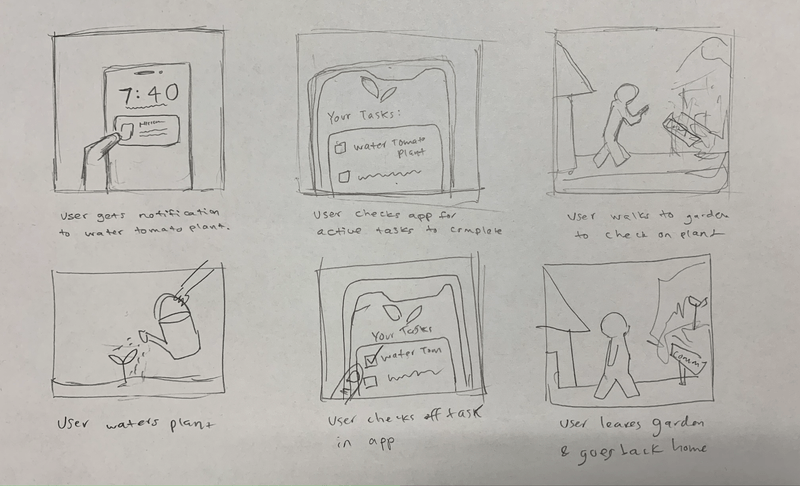 7:40
User gets notification
to water tomato plant.
Your Tasks:
water Tomato
plant
User checks app for
active tasks to complete
User walks to garden
to check on plant
User waters plant
Your Tasks
water Tom
User checks off task
in app
User leaves garden
& goes back home